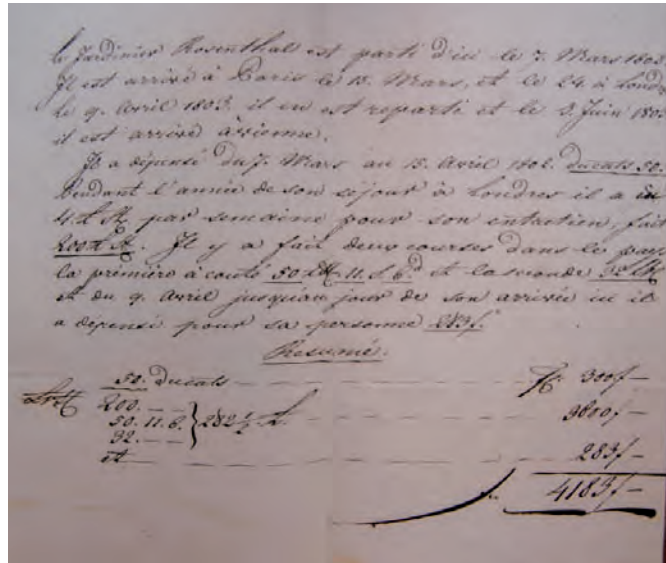 le Jardinier Rosenthal est parti d'ici le 7. Mars 1802.
Il est arrivé à Paris le 18. Mars, et le 24. à Londr
Le 9. Avril 1803. il en est reparti et le 3. Juin 180
il est arrivé à vienne.
Il a dépensé du 7. Mars au 18. Avril 1802. ducats 50.
Pendant l'année de son séjour à Londres il a
4 par semaine pour son entretien, fait
200. Il y a fait deux courses dans le pays
la prémière a couté 50 11. s 6.d et la seconde 32
et du 9. Avril jusqu'au jour de son arrivée ici il
a dépensé pour sa personne 283f.
Resumé.
50. Ducats — 300f—
200. —
50. 11. 6. } 282 1/2 — 3600f—
32. —
et — 283f—
4183f—